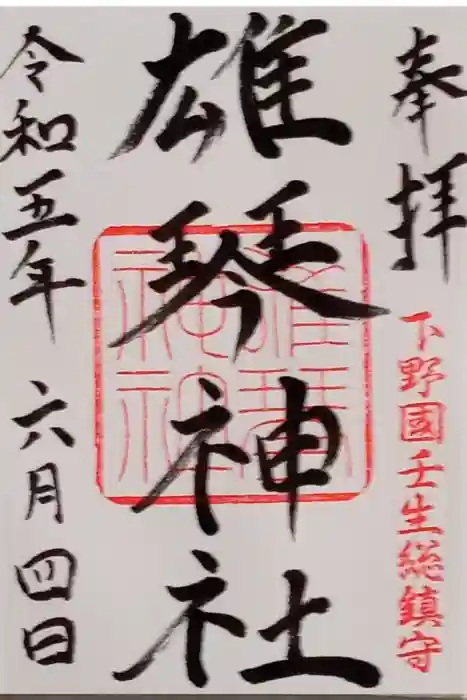 奉拝
下野國壬生総鎮守
雄琴神社
雄琴神社
令和五年 六月四日